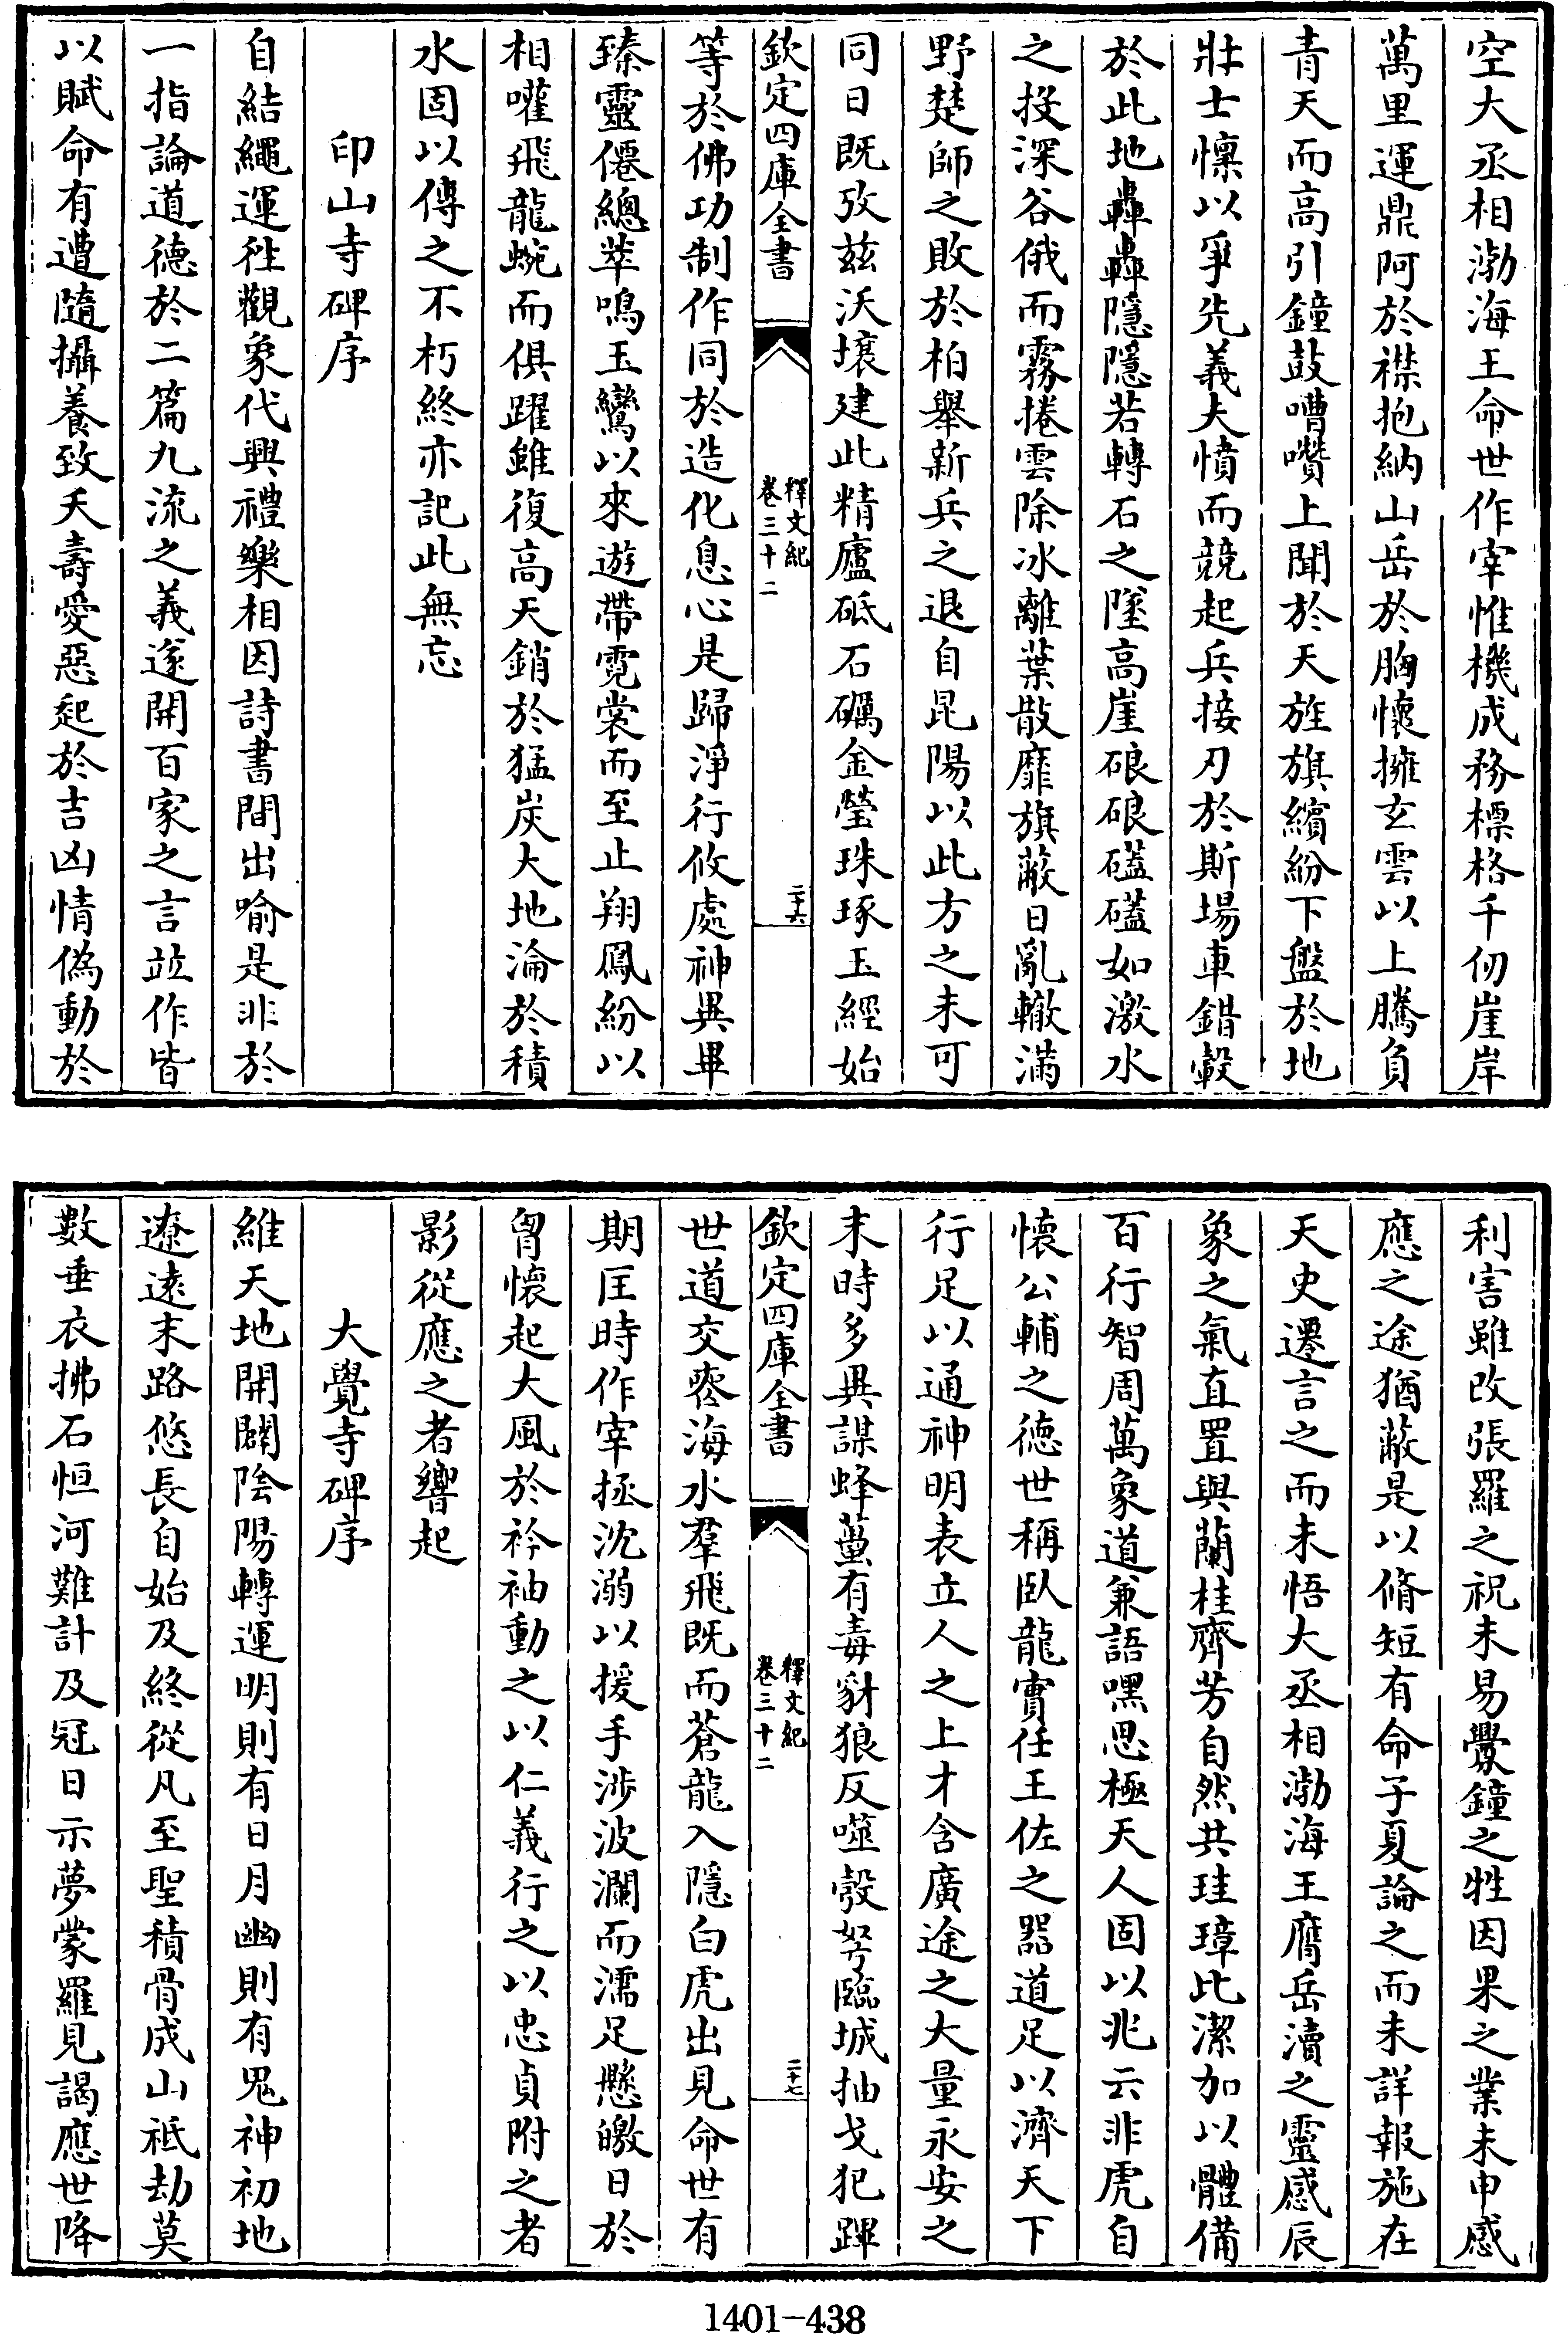 空大丞相渤海王命世作宰惟機成務標格千仞崖岸
萬里運鼎阿於襟抱納山岳於胸懷擁玄雲以上騰負
青天而高引鐘鼓嘈囋上聞於天旌旗繽紛下盤於地
壯士懍以爭先義夫憤而競起兵接刃於斯場車錯轂
於此地轟轟隱隱若轉石之墜高崖硠硠礚礚如激水
之投深谷俄而霧捲雲除冰離葉散靡旗蔽日亂轍滿
野楚師之敗於柏舉新兵之退自昆陽以此方之未可
同日既攷兹沃壤建此精廬砥石礪金瑩珠琢玉經始
欽定四庫全書
釋文紀
卷三十二
二十六
等於佛功制作同於造化息心是歸淨行攸處神異畢
臻靈僊總萃鳴玉鸞以來遊帶霓裳而至止翔鳳紛以
相嚾飛龍蜿而俱躍雖復高天銷於猛炭大地淪於積
水固以傳之不朽終亦記此無忘
印山寺碑序
自結繩運徃觀象代興禮樂相因詩書間出喻是非於
一指論道德於二篇九流之義遂開百家之言竝作皆
以賦命有遭隨攝養致夭壽愛惡起於吉凶情偽動於
利害雖改張羅之祝未易釁鐘之牲因果之業未申感
應之途猶蔽是以脩短有命子夏論之而未詳報施在
天史遷言之而未悟大丞相渤海王膺岳瀆之靈感辰
象之氣直置與蘭桂齊芳自然共珪璋比潔加以體備
百行智周萬象道兼語嘿思極天人固以兆云非虎自
懷公輔之德世稱臥龍實任王佐之器道足以濟天下
行足以通神明表立人之上才含廣途之大量永安之
末時多異謀蜂蠆有毒豺狼反噬彀弩臨城抽戈犯蹕
欽定四庫全書
釋文紀
卷三十二
二十七
世道交喪海水羣飛既而蒼龍入隱白虎出見命世有
期匡時作宰拯沈溺以援手涉波瀾而濡足懸皦日於
胷懷起大風於衿袖動之以仁義行之以忠貞附之者
影從應之者響起
大覺寺碑序
維天地開闢陰陽轉運明則有日月幽則有鬼神初地
遼遠末路悠長自始及終從凡至聖積骨成山祇劫莫
數垂衣拂石恒河難計及冠日示夢蒙羅見謁應世降
1401-438